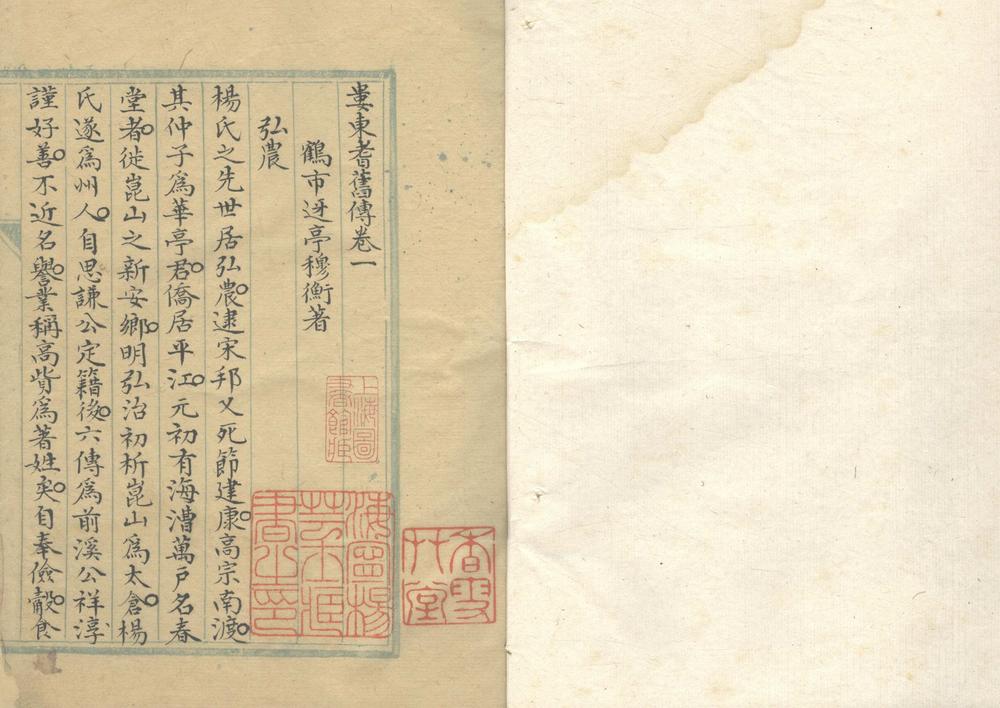 婁東耆舊傳卷一
鶴市迓亭穆衡著
弘農
楊氏之先世居弘農逮宋邦乂死節建康高宗南渡
其仲子為華亭君僑居平江元初有海漕萬戶名春
堂者徙崑山之新安鄉明弘治初析崑山為太倉楊
氏遂為州人自思謙公定籍後六傳為前溪公祥淳
謹好善不近名譽業稱高貲為著姓矣自奉儉觳食
上海圖書館臧
海寧楊芸士臧書之印
香雪艸堂